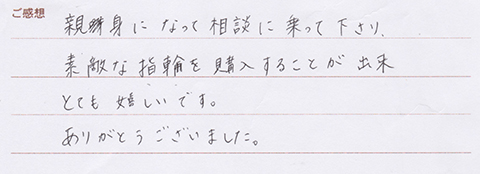 ご感想
親身になって相談に乗って下さり、
素敵な指輪を購入することが出来
とても嬉しいです。
ありがとうございました。